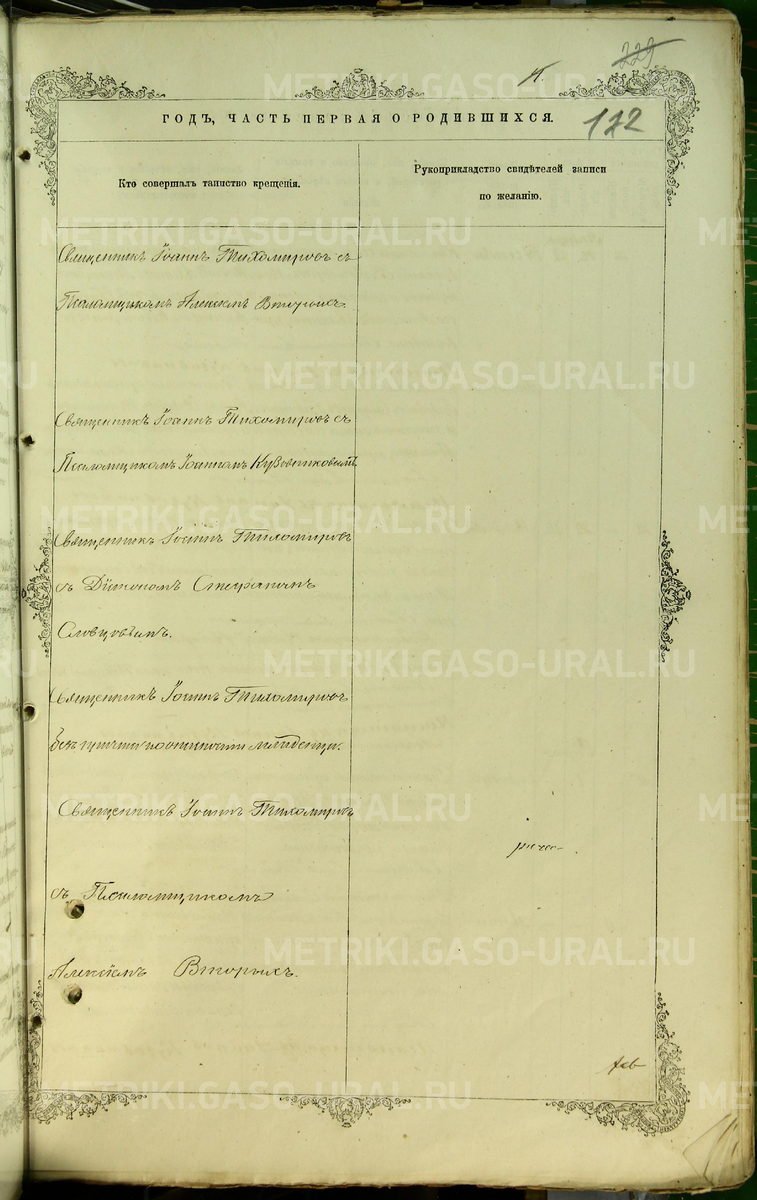 229
122
ГОДЪ, ЧАСТЬ ПЕРВАЯ О РОДИВШИХСЯ.
Кто совершалъ таинство крещенія.
Рукоприкладство свидѣтелей записи
по желанію.
Священникъ Іоаннъ Тихомировъ съ
Псаломщикомъ Алексѣемъ Вторыхъ.
Священникъ Іоаннъ Тихомировъ съ
Псаломщикомъ Іоанномъ Кузовниковымъ.
Священникъ Іоаннъ Тихомировъ
съ Діакономъ Стефаномъ
Словцовымъ.
Священникъ Іоаннъ Тихомировъ
безъ причта
Священникъ Іоаннъ Тихомировъ
съ Псаломщикомъ
Алексѣемъ Вторыхъ.
METRIKI.GASO-URAL.RU